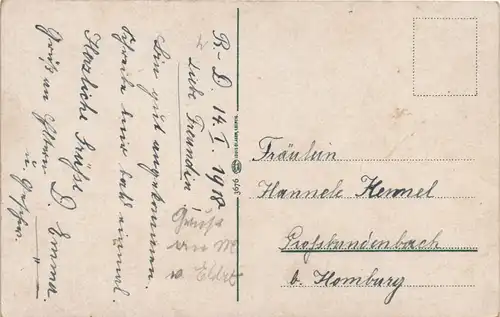 R.-D. 14. I. 1918
Liebe Freundin!
Bin gut angekommen.
Schreibe mir bald einmal.
Herzliche Grüße
D. Emma
Gruß an Eltern
u. Geschw.
Gruß
an M
u Eltr
3676
Fräulein
Hannele Hemmel
Großbundenbach
b. Homburg